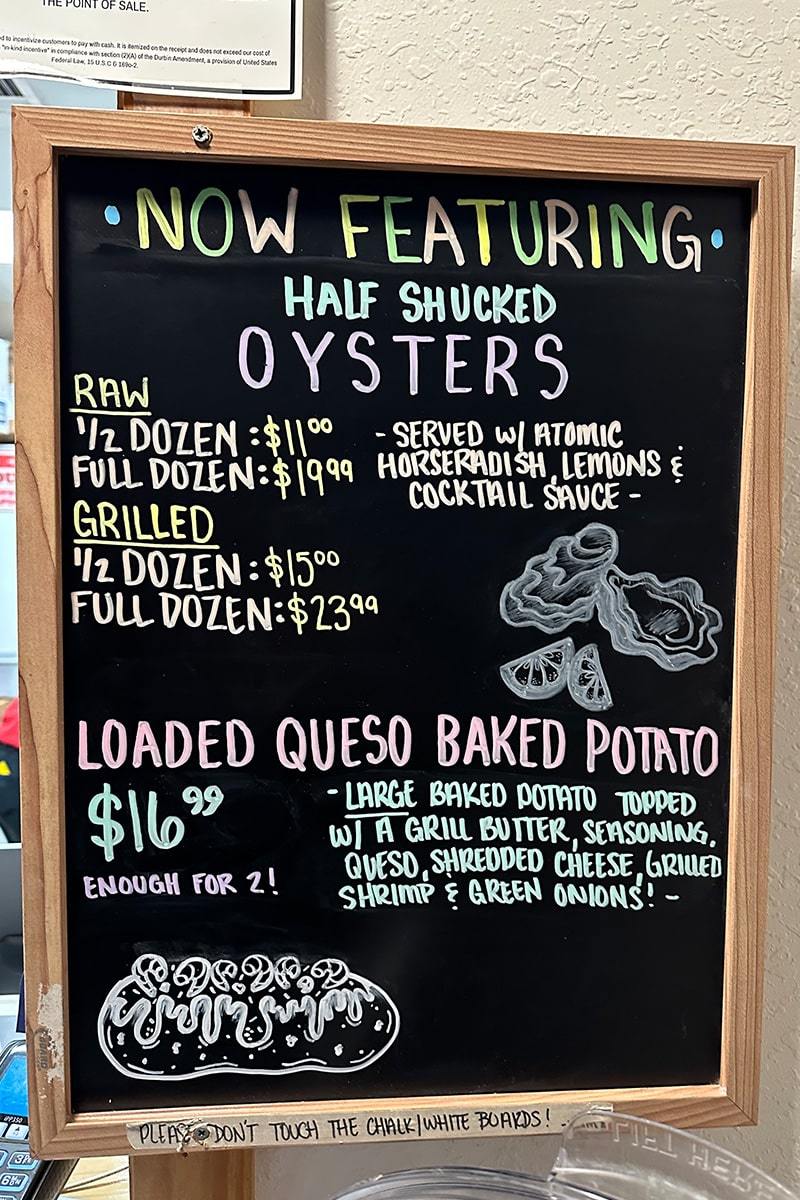 THE POINT OF SALE.
ed to incentivize customers to pay with cash. It is itemized on the receipt and does not exceed our cost of
"in-kind incentive" in compliance with section (2)(A) of the Durbin Amendment, a provision of United States
Federal Law, 15 U.S.C § 169o-2.
•NOW FEATURING•
HALF SHUCKED
OYSTERS
RAW
1/2 DOZEN :$1100
FULL DOZEN:$1999
- SERVED W/ ATOMIC
HORSERADISH, LEMONS &
COCKTAIL SAUCE -
GRILLED
1/2 DOZEN:$1500
FULL DOZEN:$2399
LOADED QUESO BAKED POTATO
$1699
ENOUGH FOR 2!
- LARGE BAKED POTATO TOPPED
W/ A GRILL BUTTER, SEASONING,
QUESO, SHREDDED CHEESE, GRILLED
SHRIMP & GREEN ONIONS! -
PLEASE DON'T TOUCH THE CHALK/WHITE BOARDS! -
LIFT HERE
iPP350